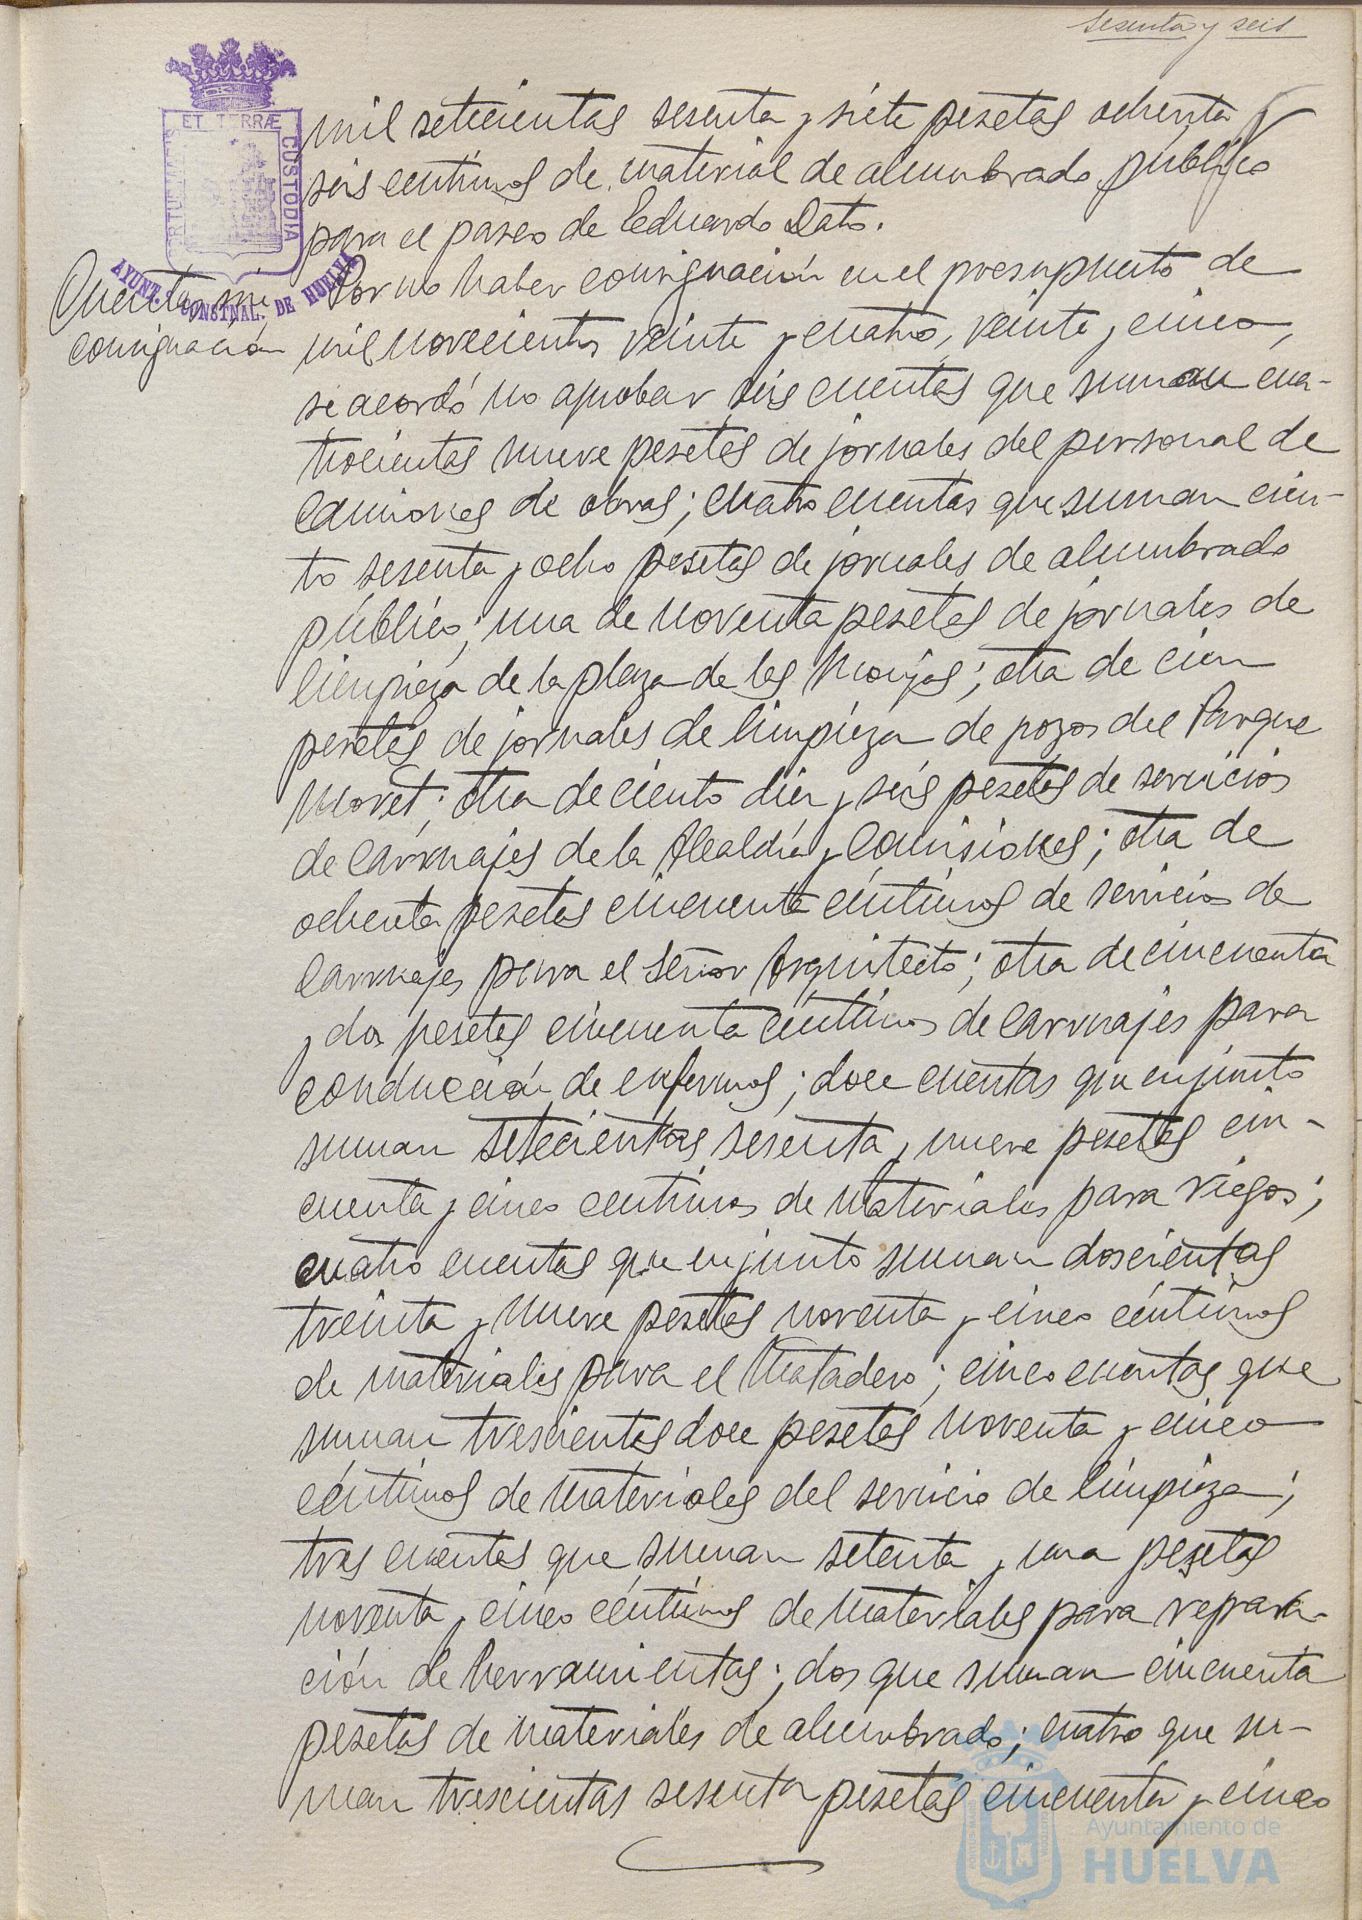 sesenta y seis
mil setecientas sesenta y siete pesetas ochenta
seis centimos de material de alumbrado público
para el paseo de Eduardo Dato.
ET TERRÆ
CUSTODIA
AYUNT. CONSTNAL. DE HUELVA
Cuentas sin
consignación
Por no haber consignación en el presupuesto de
mil novecientos veinte y cuatro, veinte y cinco,
se acordó no aprobar seis cuentas que suman cua-
trocientas nueve pesetas de jornales del personal de
camiones de obras; cuatro cuentas que suman cien-
to sesenta y ocho pesetas de jornales de alumbrado
público; una de noventa pesetas de jornales de
limpieza de la plaza de las Monjas; otra de cien
pesetas de jornales de limpieza de pozos del Parque
Moret; otra de ciento diez y seis pesetas de servicios
de carruajes de la Alcaldía y Comisiones; otra de
ochenta pesetas cincuenta céntimos de servicio de
carruajes para el Señor Arquitecto; otra de cincuenta
y dos pesetas cincuenta céntimos de carruajes para
conducción de enfermos; doce cuentas que en junto
suman setecientas sesenta y nueve pesetas cin-
cuenta y cinco centimos de materiales para riegos;
cuatro cuentas que en junto suman doscientas
treinta y nueve pesetas noventa y cinco céntimos
de materiales para el Matadero; cinco cuentas que
suman trescientas doce pesetas noventa y cinco
céntimos de materiales del servicio de limpieza;
tres cuentas que suman setenta y una pesetas
noventa y cinco céntimos de materiales para repara-
ción de herramientas; dos que suman cincuenta
pesetas de materiales de alumbrado; cuatro que su-
man trescientas sesenta pesetas cincuenta y cinco
Ayuntamiento de
HUELVA